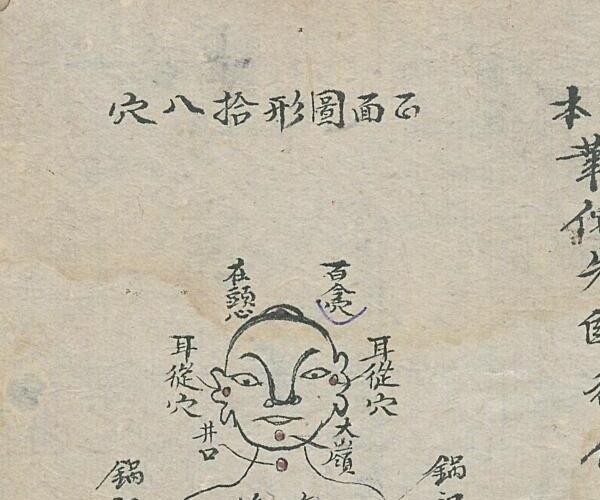 本華佗先
正面圖形拾八穴
百會
在頭心
耳從穴
耳從穴
大嶺
井口
鍋
鍋